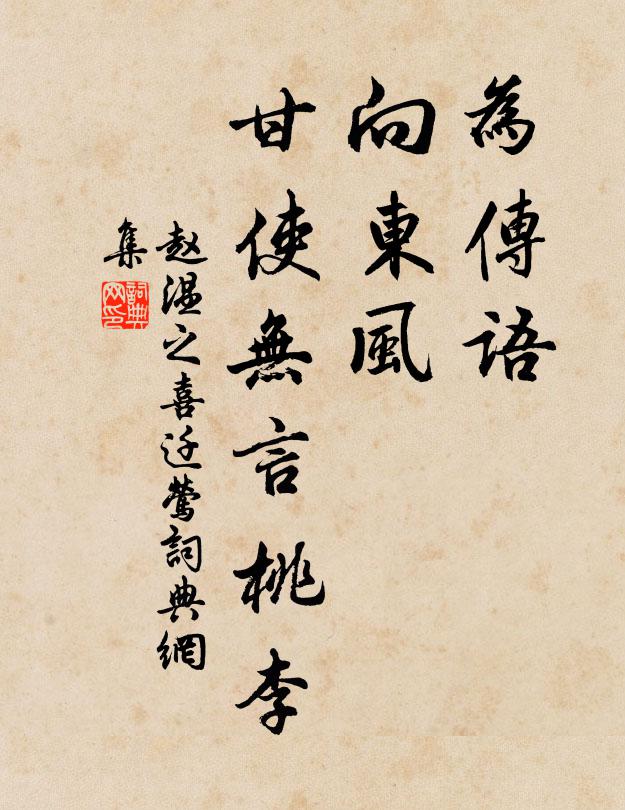 為傳語
向東風
甘使無言桃李
赵温之喜迁莺詞典網
集
詞典
网印